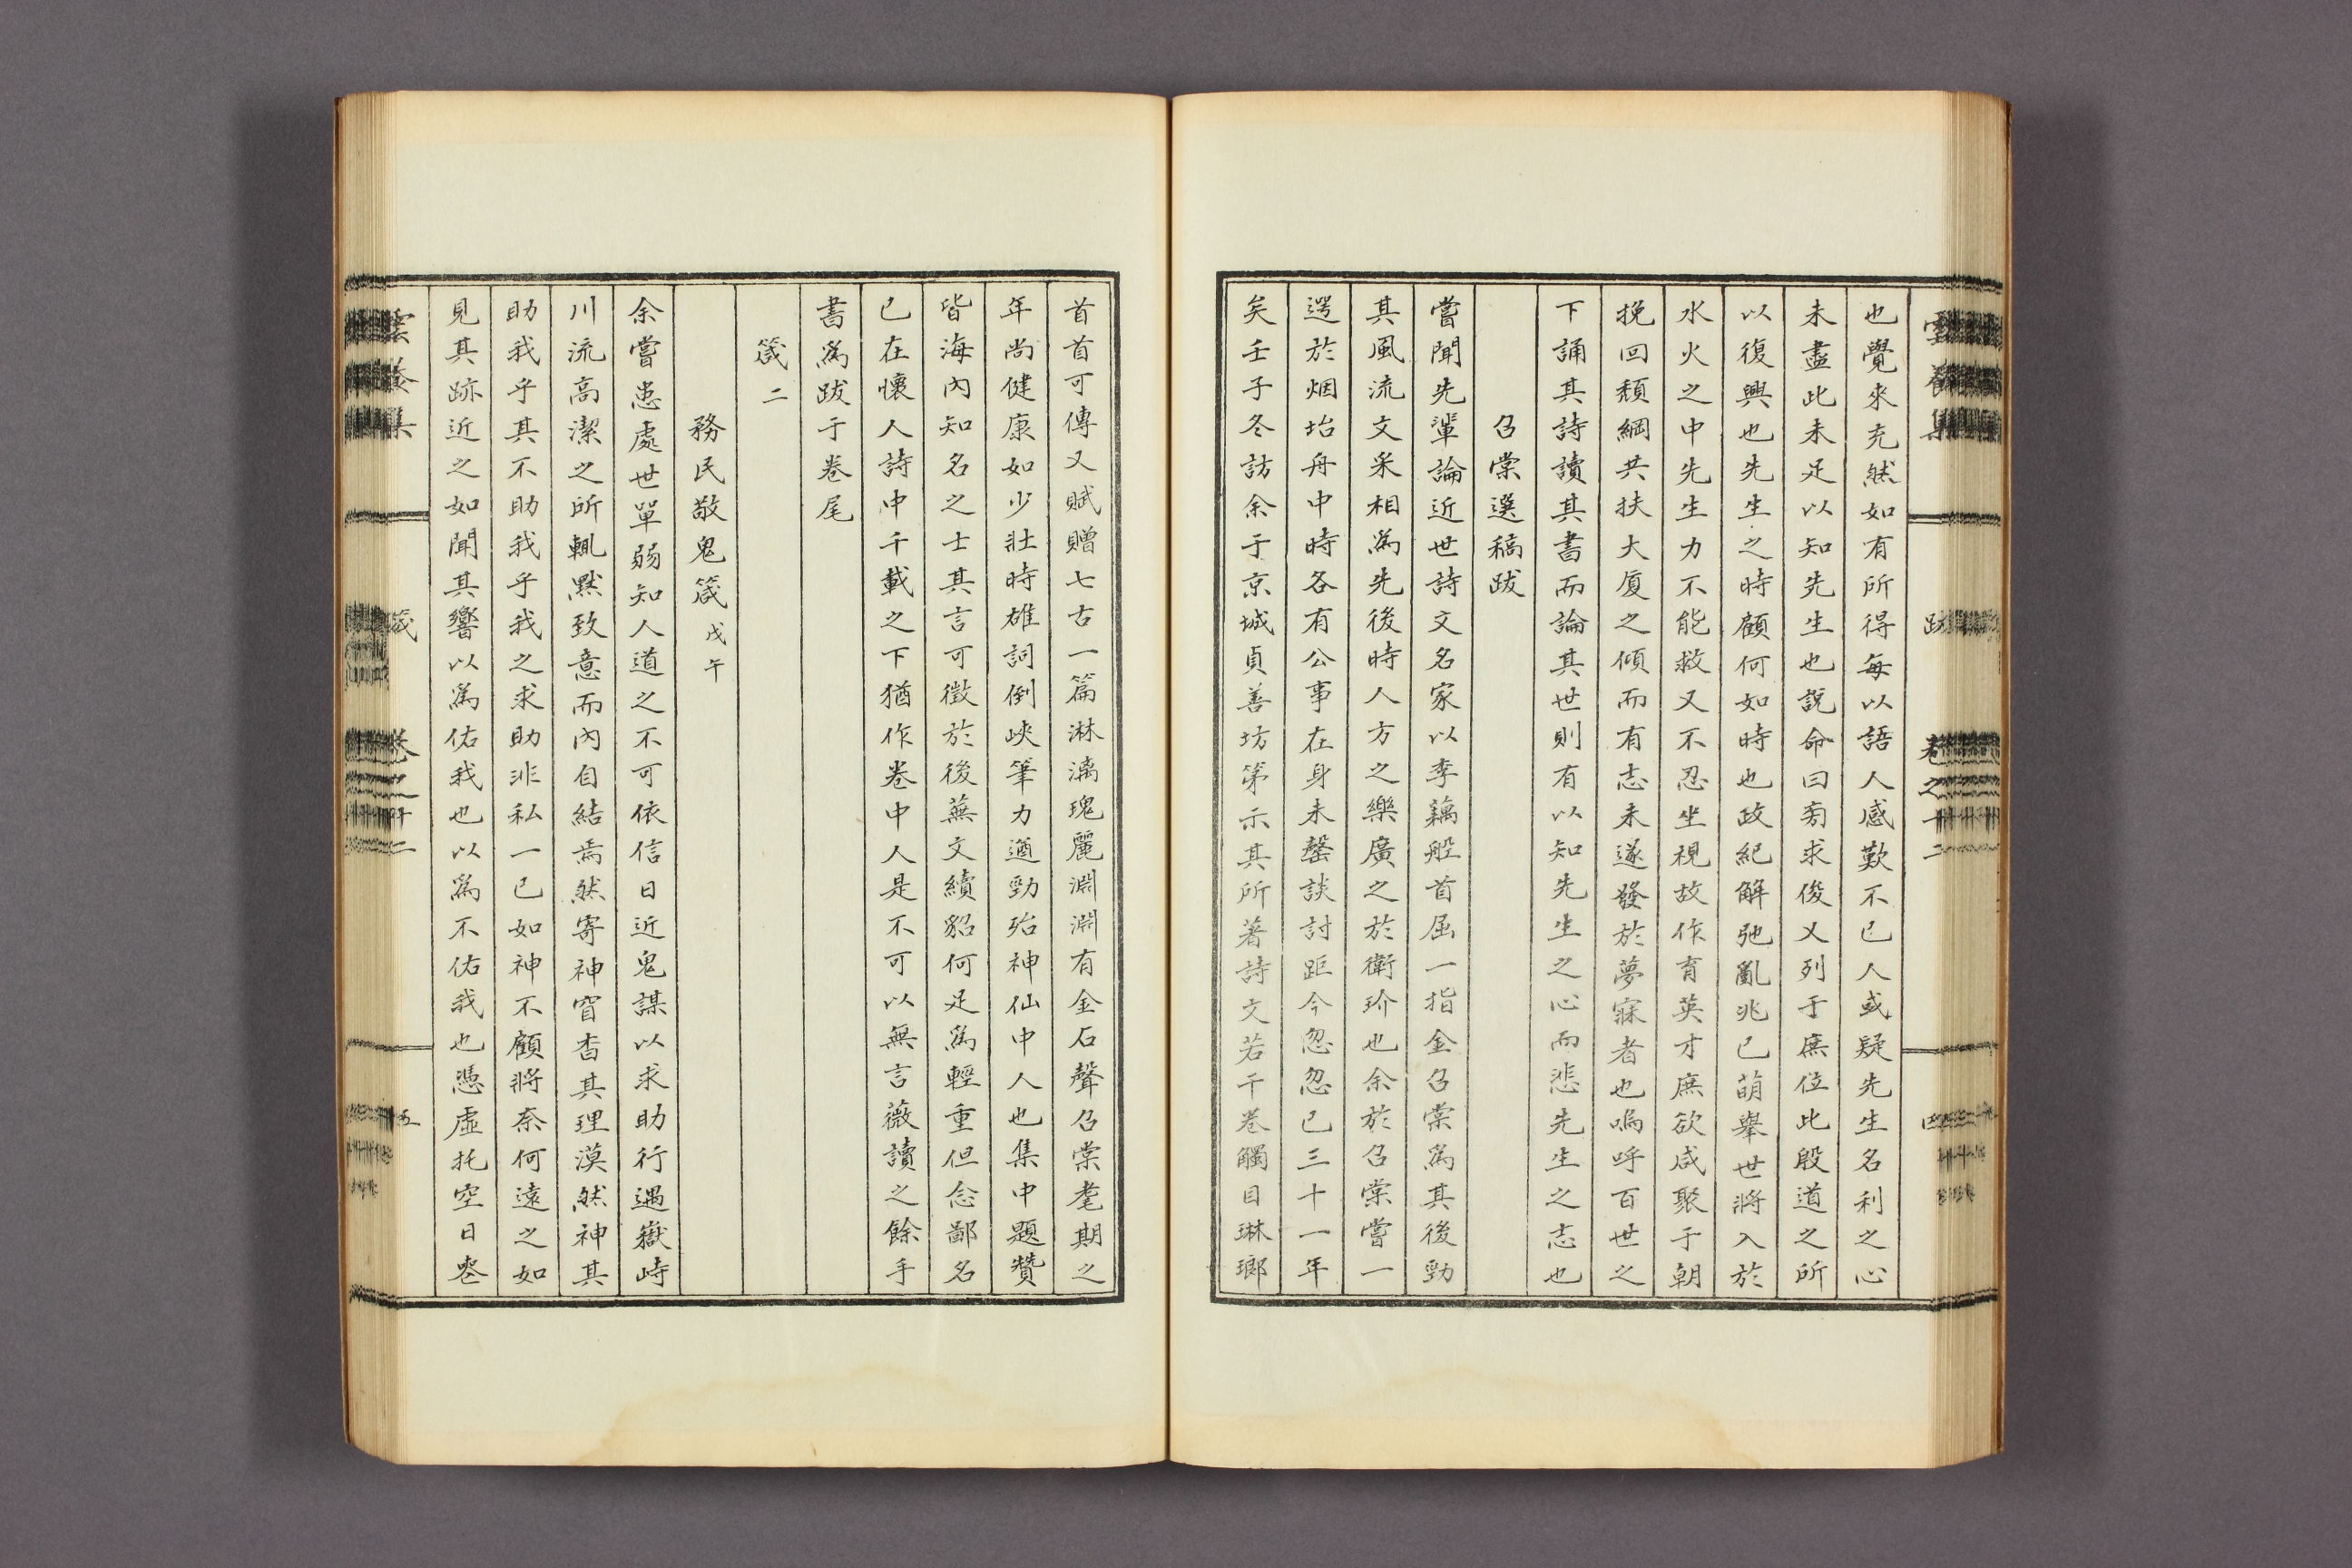 雲養集 跋 卷之十二 四
也覺來充然如有所得每以語人感歎不已人或疑先生名利之心
未盡此未足以知先生也說命曰旁求俊乂列于庶位此殷道之所
以復興也先生之時顧何如時也政紀解弛亂兆已萌舉世將入於
水火之中先生力不能救又不忍坐視故作育英才庶欲咸聚于朝
挽回頹綱共扶大厦之傾而有志未遂發於夢寐者也嗚呼百世之
下誦其詩讀其書而論其世則有以知先生之心而悲先生之志也
召棠選稿跋
嘗聞先輩論近世詩文名家以李藕船首屈一指金召棠爲其後勁
其風流文采相爲先後時人方之樂廣之於衛玠也余於召棠嘗一
遌於烟坮舟中時各有公事在身未罄談討距今忽忽已三十一年
矣壬子冬訪余于京城貞善坊第示其所著詩文若干卷觸目琳瑯
首首可傳又賦贈七古一篇淋漓瑰麗淵淵有金石聲召棠耄期之
年尚健康如少壯時雄詞倒峽筆力遒勁殆神仙中人也集中題贊
皆海內知名之士其言可徵於後蕪文續貂何足爲輕重但念鄙名
已在懷人詩中千載之下猶作卷中人是不可以無言薇讀之餘手
書爲跋于卷尾
箴二
務民敬鬼箴 戊午
余嘗患處世單弱知人道之不可依信日近鬼謀以求助行遇嶽峙
川流高潔之所輒黙致意而內自結焉然寄神窅杳其理漠然神其
助我乎其不助我乎我之求助非私一已如神不顧將奈何遠之如
見其跡近之如聞其響以爲佑我也以爲不佑我也憑虛托空日卷
雲養集 箴 卷之十二 五